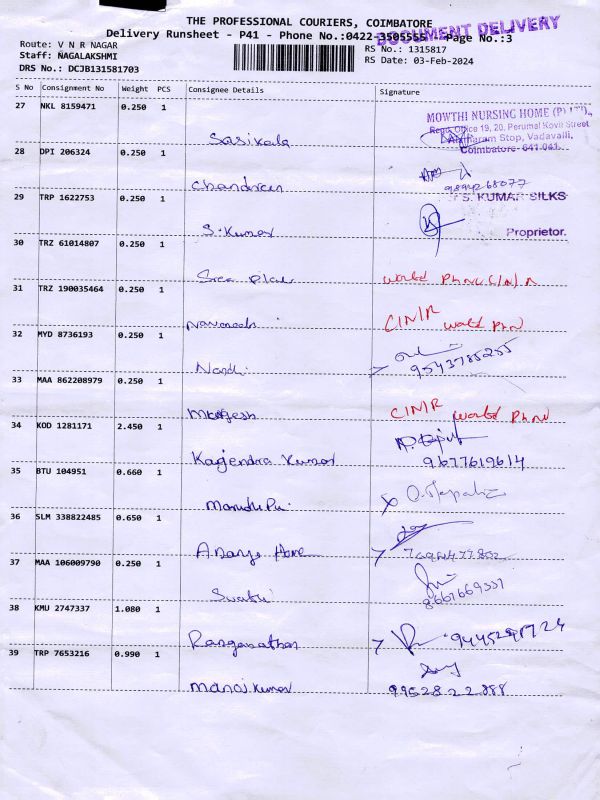 THE PROFESSIONAL COURIERS, COIMBATORE
DOCUMENT DELIVERY
Delivery Runsheet - P41 - Phone No.:0422-3505555 Page No.:3
Route: V N R NAGAR
Staff: NAGALAKSHMI
DRS No.: DCJB131581703
RS No.: 1315817
RS Date: 03-Feb-2024
S No Consignment No Weight PCS Consignee Details Signature
27 NKL 8159471 0.250 1
MOWTHI NURSING HOME (P) LTD.,
Regd. Office 19, 20, Perumal Kovil Street
Stop, Vadavalli,
Coimbatore-641 041.
Sasikala
28 DPI 206324 0.250 1
Chandran
9894268077
29 TRP 1622753 0.250 1
S. KUMAR SILKS
S. Kumar
Proprietor.
30 TRZ 61014807 0.250 1
Sree
31 TRZ 190035464 0.250 1
CIN/R
32 MYD 8736193 0.250 1
Nandhi
9543785255
33 MAA 862208979 0.250 1
CIN/R
34 KOD 1281171 2.450 1
Kagjendra Kumar
9677619614
35 BTU 104951 0.660 1
36 SLM 338822485 0.650 1
Home
37 MAA 106009790 0.250 1
Swathi
8667669337
38 KMU 2747337 1.080 1
Ranganathan
39 TRP 7653216 0.990 1
Manoj Kumar
9952822888